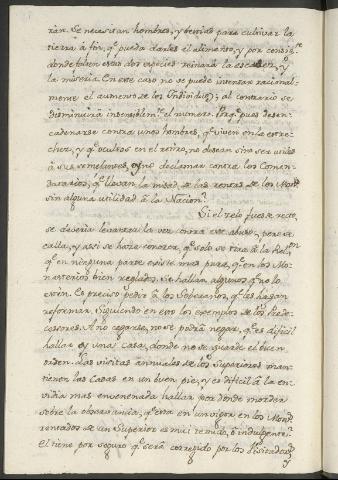 ràn. Se necesitan hombres, y bestias para cultivar la
tierra à fin, qᵉ pueda darles el alimento, y por consigᵗᵉ
donde falten esas dos especies reinarà la escasèz, y
la miseria. En este caso no se puede intentar racional-
mente el aumento de los Individuos; al contrario se
disminuirà insensiblemᵗᵉ el numero. Porqᵉ pues desen-
cadenarse contra unos hombres, qᵉ viven en la estre-
chez, y qᵉ ocultos en el retiro, no desean sino ser utiles
à sus semejantes, y no declamar contra los Comen-
datarios, qᵉ llevan la mitad de las rentas de los Monᵒˢ
sin alguna utilidad à la Nacion?
Si el zelo fuese recto,
se deberia levantar la voz contra este abuso; pero se
calla, y assi se hace conocer, qᵉ solo se tira à la Relᵒⁿ
qᵉ en ninguna parte existe mas pura, qᵉ en los Mo-
nasterios bien reglados. Se hallan algunos, qᵉ no lo
estèn. Es preciso pedir à los Soberanos, qᵉ les hagan
reformar, siguiendo en esto los exemplos de los Prede-
cesores. A no cegarse, no se podrà negar, qᵉ es dificil
hallar una Casa, donde no se guarde el buen
orden. Las visitas annuales de los Superiores man-
tienen las Casas en un buen pie, y es dificil à la en-
vidia mas envenenada hallar por donde morder
sobre la observancia, qᵉ està en vigor en los Monᵒˢ
rentados. se es un Superior es mui remiso, ò indulgente;
el tiene por seguro qᵉ serà corregido por los Visitadoʳᵉˢ
y